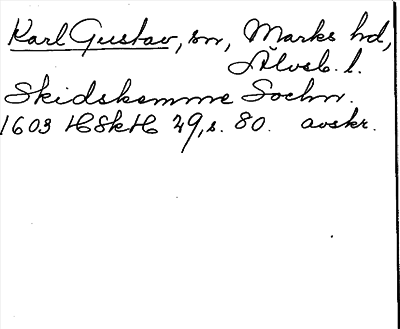 Karl Gustav, sn, Marks hd,
Älvsb. l.
Skidskamme Sochn.
1603 HSkH 29, s. 80. avskr.